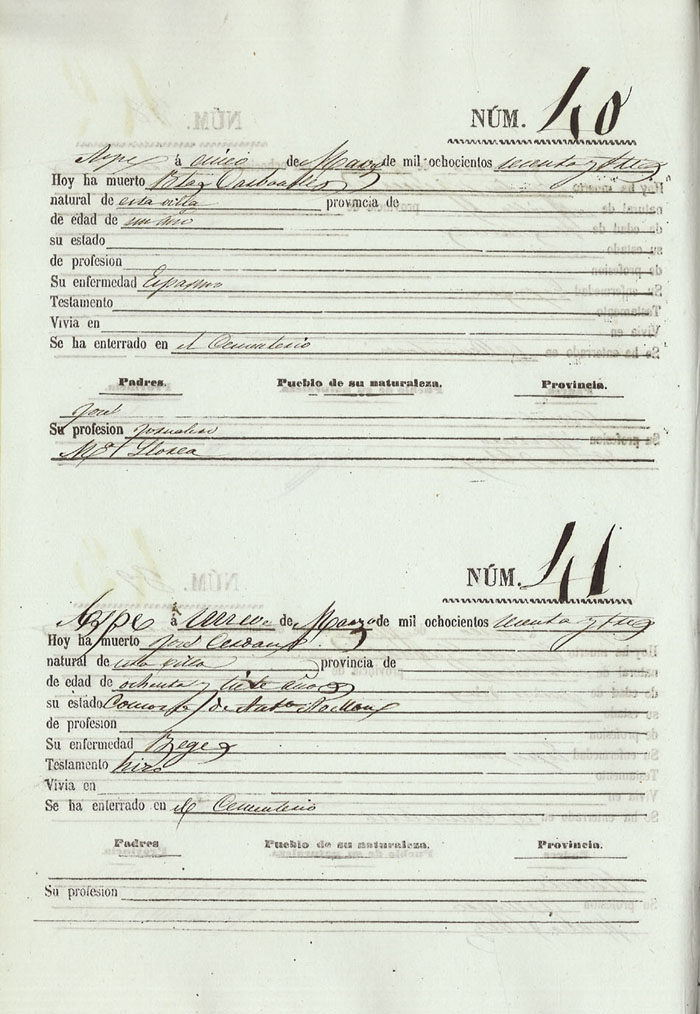 NÚM. 40
Aspe á cinco de Marzo de mil ochocientos sesenta y
Hoy ha muerto Blas
natural de esta villa provincia de
de edad de un año
su estado
de profesion
Su enfermedad Espasmo
Testamento
Vivia en
Se ha enterrado en el Cementerio
Padres. Pueblo de su naturaleza. Provincia.
José
Su profesion jornalero
Mª Llorca
NÚM. 41
Aspe á de Marzo de mil ochocientos sesenta y
Hoy ha muerto José
natural de esta villa provincia de
de edad de ochenta y siete años
su estado Consorte de
de profesion
Su enfermedad Begez
Testamento hizo
Vivia en
Se ha enterrado en el Cementerio
Padres Pueblo de su naturaleza. Provincia.
Su profesion